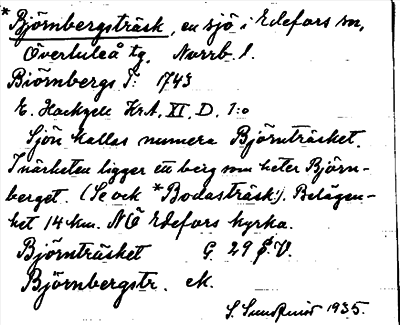 *Björnbergsträsk, en sjö i Edefors sn,
Överluleå tg, Norrb. l.
Biörnbergs T: 1743
E. Hackzell Kr.A. XI. D. 1:o
Sjön kallas numera Björnträsket.
I närheten ligger ett berg som heter Björn-
berget. (Se ock *Bodasträsk!). Belägen-
het 14 km. NÖ Edefors kyrka.
Björnträsket G. 29 V.
Björnbergstr. ek.
S. Sundqvist 1935.